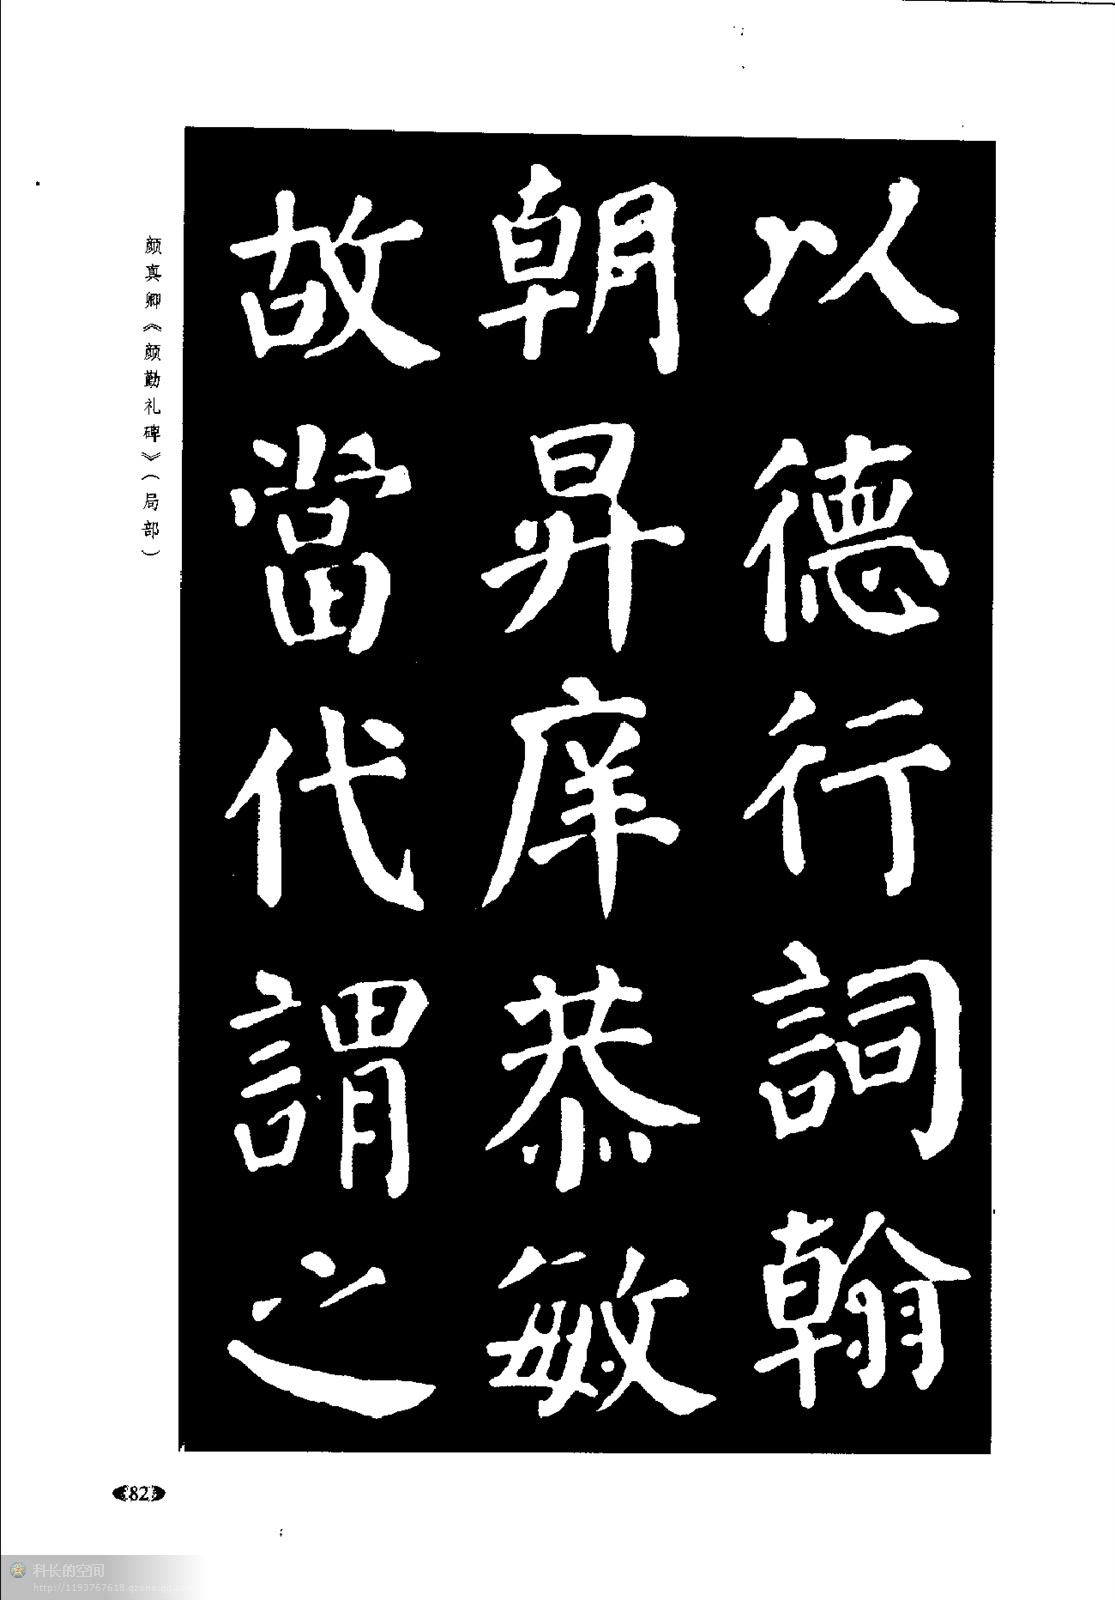 以德行詞翰
朝昇庠恭敏
故當代謂之
颜真卿《颜勤礼碑》(局部)
82
科长的空间
http://1193767618.qzone.qq.com